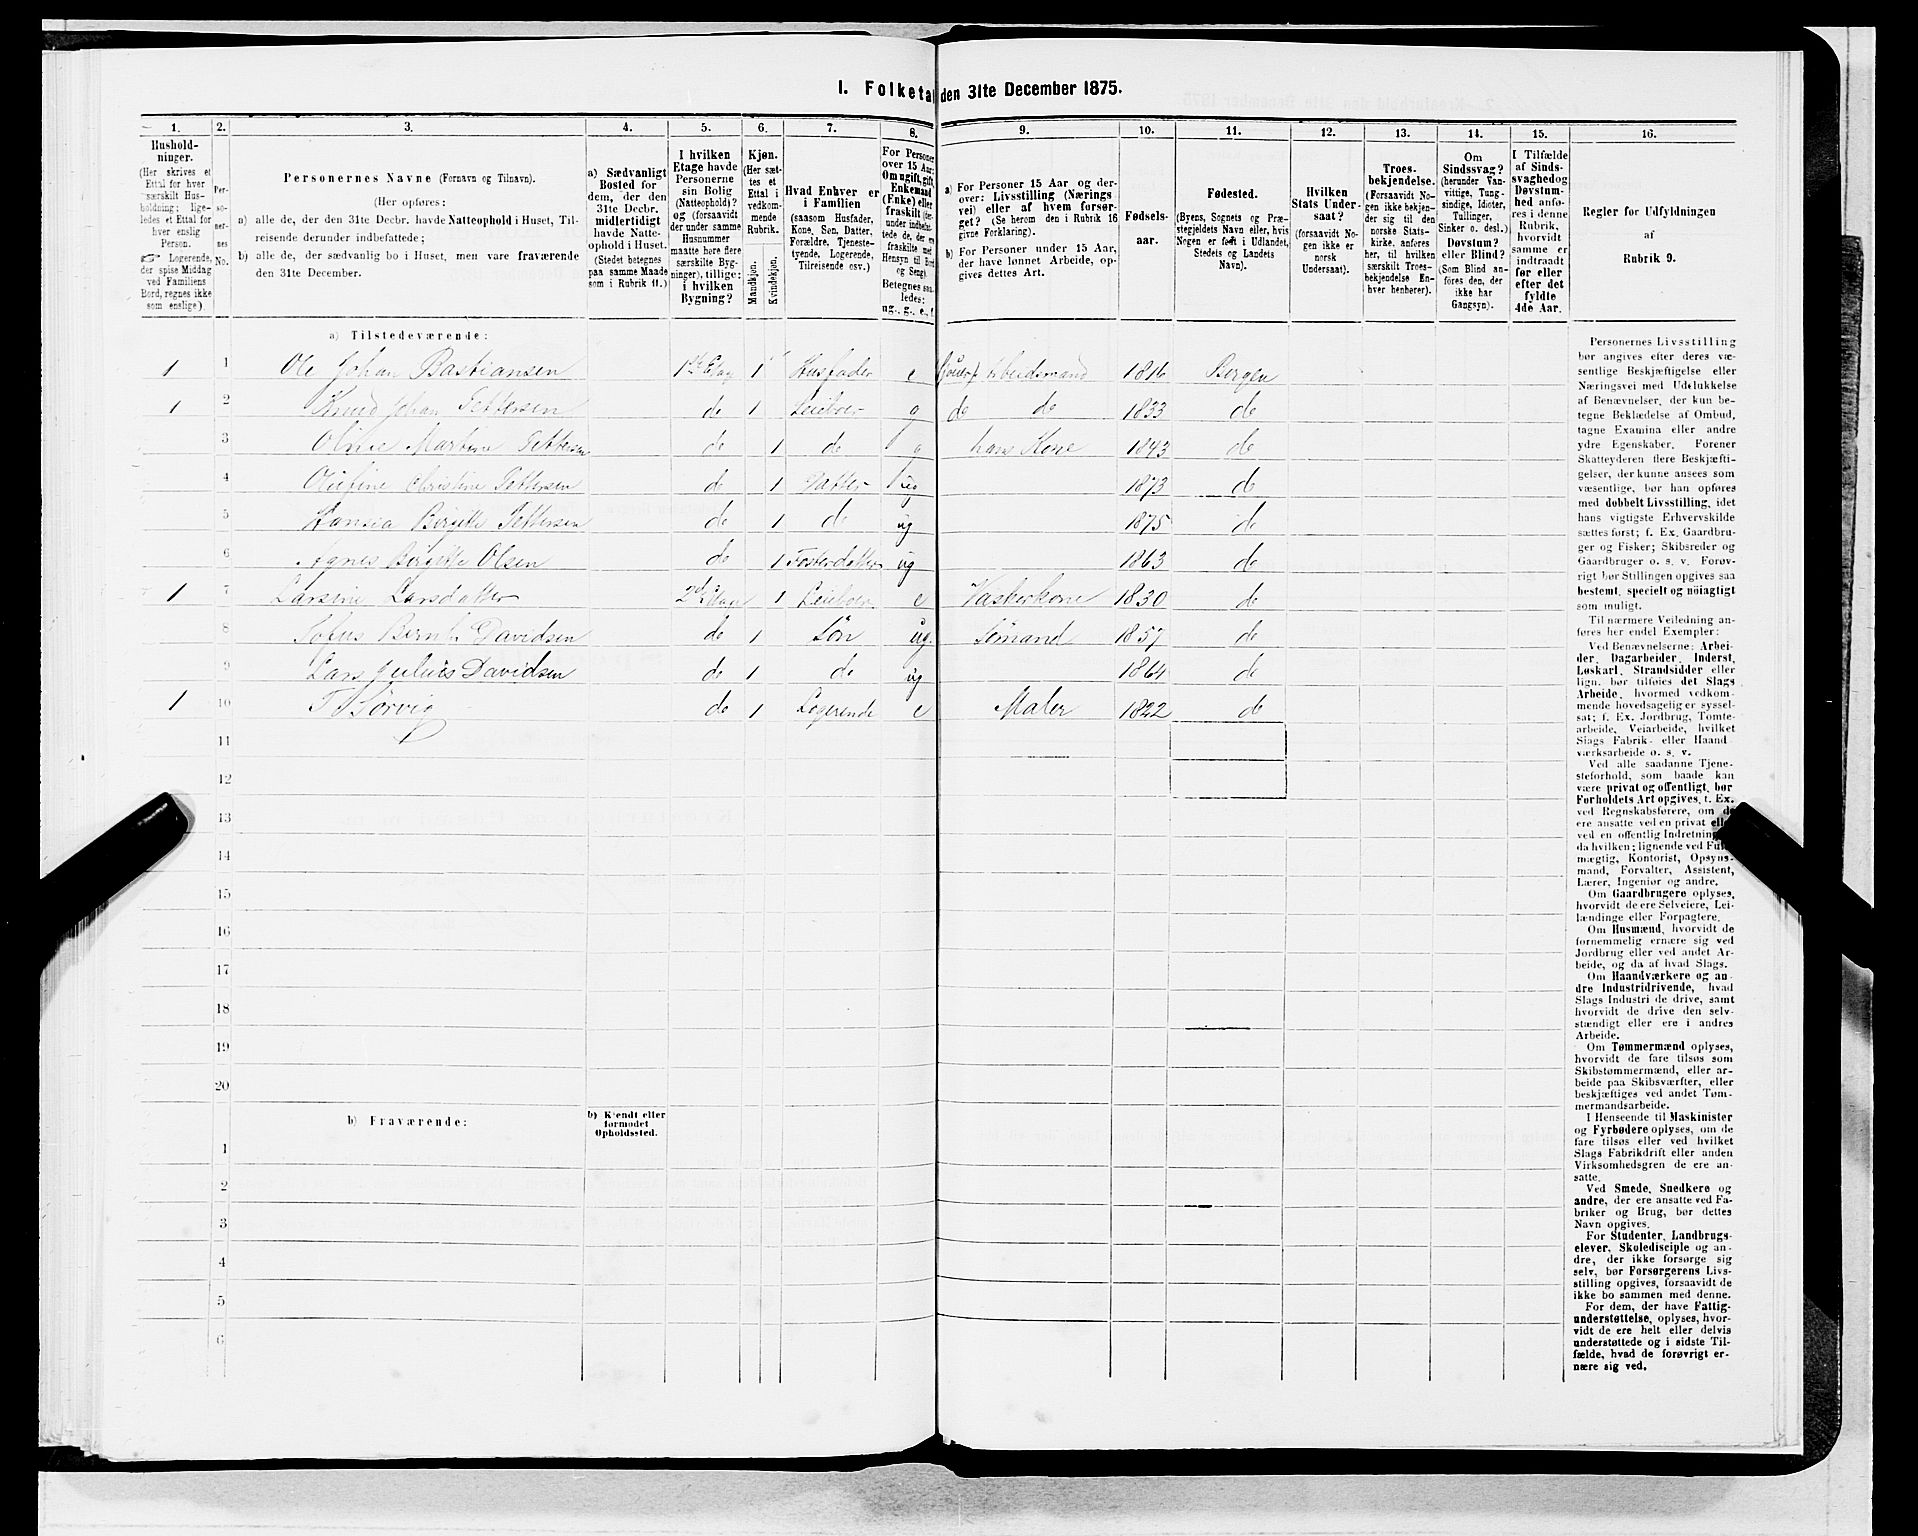 I. Folketal den 31te December 1875.
1. 2. 3. 4. 5. 6. 7. 8. 9. 10. 11. 12. 13. 14. 15. 16.
Hushold-
ninger.
(Her skrives et
Ettal for hver
særskilt Hus-
holdning; lige-
ledes et Ettal for
hver enslig
Person.
☞ Logerende,
der spise Middag
ved Familiens
Bord, regnes ikke
som enslige).
Per-
so-
ner-
nes
No.
Personernes Navne (Fornavn og Tilnavn).
(Her opføres:
a) alle de, der den 31te Decbr. havde Natteophold i Huset, Til-
reisende derunder indbefattede;
b) alle de, der sædvanlig bo i Huset, men vare fraværende
den 31te December.
a) Sædvanligt
Bosted for
dem, der den
31te Decbr.
midlertidigt
havde Natte-
ophold i Huset.
(Stedet betegnes
paa samme Maade
som i Rubrik 11.)
I hvilken
Etage havde
Personerne
sin Bolig
(Natteophold)?
og (forsaavidt
der under samme
Husnummer
maatte høre flere
særskilte Byg-
ninger), tillige:
i hvilken
Bygning?
Kjøn.
(Her sæt-
tes et
Ettal i
vedkom-
mende
Rubrik.
Mandkjøn.
Kvindekjøn.
Hvad Enhver er
i Familien
(saasom Husfader,
Kone, Søn, Datter,
Forældre, Tjeneste-
tyende, Logerende,
Tilreisende osv.)
For Personer
over 15 Aar:
Om ugift, gift,
Enkemand
(Enke) eller
fraskilt
Hensyn til Bord
og Seng).
ledes:
ug., g., e., f.
a) For Personer 15 Aar og der-
over: Livsstilling (Nærings
vei) eller af hvem forsør-
get? (Se herom den i Rubrik 16
givne Forklaring).
b) For Personer under 15 Aar,
der have lønnet Arbeide, op-
gives dettes Art.
Fødsels-
aar.
Fødested.
(Byens, Sognets og Præ-
stegjeldets Navn eller, hvis
Nogen er født i Udlandet,
Stedets og Landets
Navn).
Hvilken
Stats Under-
saat?
(forsaavidt No-
gen ikke er
norsk
Undersaat).
Troes-
bekjendelse.
(Forsaavidt No-
gen ikke bekjen-
der sig til den
norske Stats-
kirke, anføres
her, til hvilken
særskilt Troes-
bekjendelse En-
hver henhører).
Om
Sindssvag?
(herunder Van-
vittige, Tung-
sindige, Idioter,
Tullinger,
Sinker o. desl.)
Døvstum?
eller Blind?
(Som Blind an-
føres den, der
ikke har
Gangsyn).
I Tilfælde
af Sinds-
svaghed og
Døvstum-
hed anfø-
res i denne
Rubrik,
hvorvidt
samme er
indtraadt
før eller
efter det
fyldte
4de Aar.
Regler for Udfyldningen
af
Rubrik 9.
a) Tilstedeværende:
1 1 Ole Johan Bastiansen 1ste Etag 1 Husfader e Arbeidsmand 1816 Bergen
1 2 Knud Johan Pettersen de 1 Leieboer g de de 1833 de
3 Oline Martine Pettersen de 1 de g hans Kone 1843 de
4 Olufine Christine Pettersen de 1 Datter ug 1873 de
5 Hansia Birgitte Pettersen de 1 de ug 1875 de
6 Agnes Birgitte Olsen de 1 Fosterdatter ug 1863 de
1 7 Larsine Larsdatter 2d Etage 1 Leieboer e Vaskerkone 1830 de
8 Sofus Bernh. Davidsen de 1 Søn ug. Sømand 1857 de
9 Lars Julius Davidsen de 1 de ug 1864 de
1 10 Sørvig de 1 Logerende e Maler 1822 de
11
12
13
14
15
16
17
18
19
20
b) Fraværende:
b) Kjendt eller
formodet
Opholdssted.
1
2
3
4
5
6
Personernes Livsstilling
bør angives efter deres væ-
sentlige Beskjæftigelse eller
Næringsvei med Udelukkelse
af Benævnelser, der kun be-
tegne Beklædelse af Ombud,
tagne Examina eller andre
ydre Egenskaber. Forener
Skatteyderen flere Beskjæfti-
gelser, der kunne ansees som
væsentlige, bør han opføres
med dobbelt Livsstilling, idet
hans vigtigste Erhvervskilde
sættes først; f. Ex. Gaardbru-
ger og Fisker; Skibsreder og
Gaardbruger o. s. v. Forøv-
rigt bør Stillingen opgives saa
bestemt, specielt og nöiagtigt
som muligt.
Til nærmere Veiledning an-
føres her endel Exempler:
Ved Benævnelserne: Arbei-
der, Dagarbeider, Inderst,
Løskarl, Strandsidder eller
lign. bør tilføies det Slags
Arbeide, hvormed vedkom-
mende hovedsagelig er syssel-
sat; f. Ex. Jordbrug, Tomte-
arbeide, Veiarbeide, hvilket
Slags Fabrik- eller Haand-
værksarbeide o. s. v.
Ved alle saadanne Tjene-
steforhold, som baade kan
være privat og offentligt, bør
Forholdets Art opgives, t. Ex.
ved Regnskabsførere, om de
ere ansatte ved en privat eller
ved en offentlig Indretning
da hvilken; lignende ved Fuld-
mægtig, Kontorist, Opsyns-
mand, Forvalter, Assistent,
Lærer, Ingeniør og andre.
Om Gaardbrugere oplyses,
hvorvidt de ere Selveiere, Lei-
lændinge eller Forpagtere.
Om Husmænd, hvorvidt de
fornemmelig ernære sig ved
Jordbrug eller ved andet Ar-
beide, og da af hvad Slags.
Om Haandværkere og an-
dre Industridrivende, hvad
Slags Industri de drive, samt
hvorvidt de drive den selv-
stændigt eller ere i andres
Arbeide.
Om Tømmermænd oplyses,
hvorvidt de fare tilsøs som
Skibstømmermænd, eller ar-
beide paa Skibsværfter, eller
beskjæftiges ved andet Tøm-
mermandsarbeide.
I Henseende til Maskinister
og Fyrbødere oplyses, om de
fare tilsøs eller ved hvilket
Slags Fabrikdrift eller anden
Virksomhedsgren de ere an-
satte.
Ved Smede, Snedkere og
andre, der ere ansatte ved Fa-
briker og Brug, bør dettes
Navn opgives.
For Studenter, Landbrugs-
elever, Skoledisciple og an-
dre, der ikke forsørge sig
selv, bør Forsørgerens Livs-
stilling opgives, forsaavidt de
ikke bo sammen med denne.
For dem, der have Fattig-
understøttelse, oplyses, hvor-
vidt de ere helt eller delvis
understøttede og i sidste Til-
fælde, hvad de forøvrigt er-
nære sig ved.